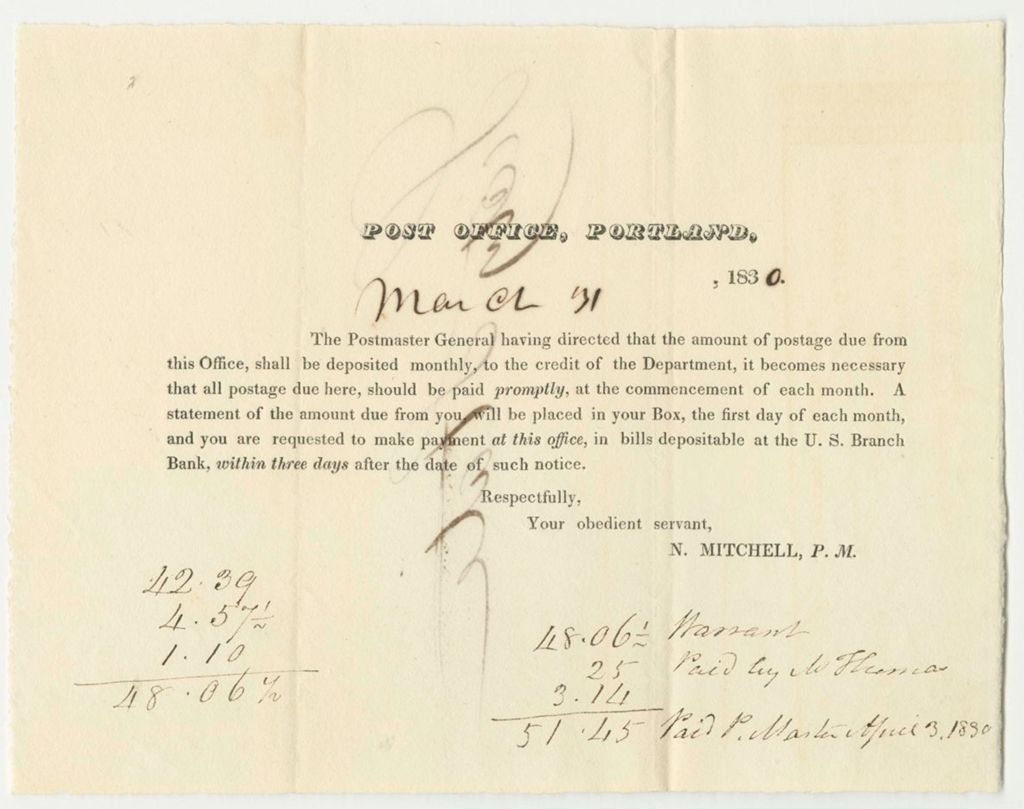 POST OFFICE, PORTLAND,
, 1830.
March 31
The Postmaster General having directed that the amount of postage due from
this Office, shall be deposited monthly, to the credit of the Department, it becomes necessary
that all postage due here, should be paid promptly, at the commencement of each month. A
statement of the amount due from you, will be placed in your Box, the first day of each month,
and you are requested to make payment at this office, in bills depositable at the U. S. Branch
Bank, within three days after the date of such notice.
Respectfully,
Your obedient servant,
N. MITCHELL, P. M.
42.39
4.57½
1.10
48.06½
48.06½ Warrant
25 Paid by M
3.14
51.45 Paid P. Master April 3, 1830